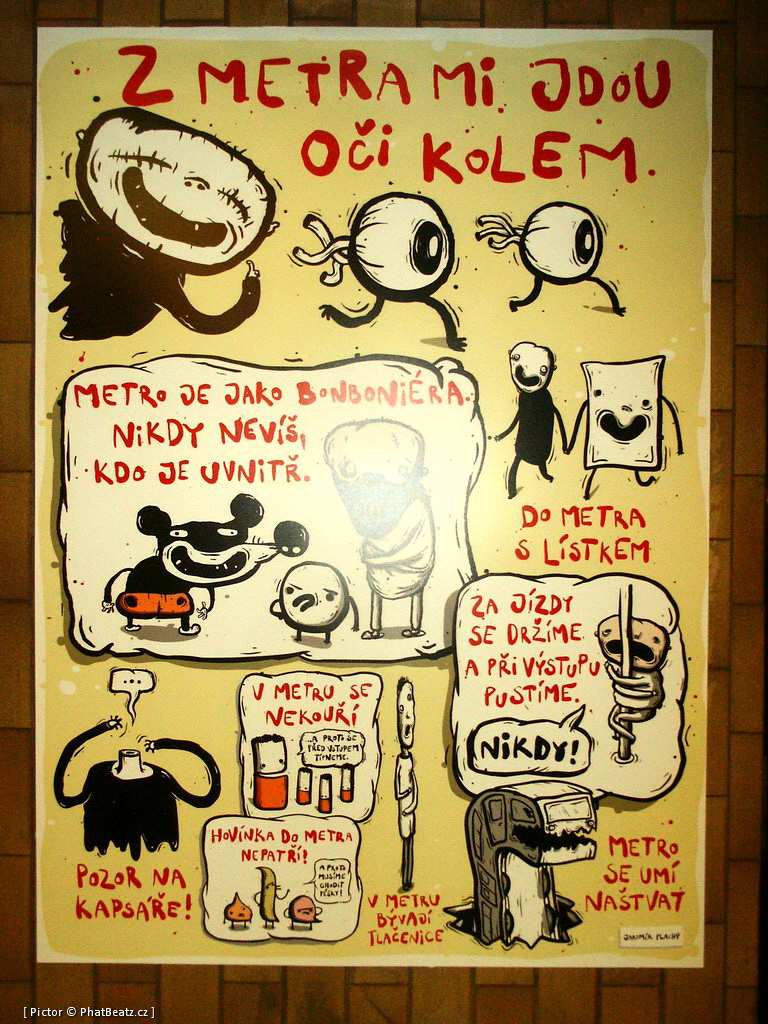 Z METRA MI JDOU
OČI KOLEM.
METRO JE JAKO BONBONIÉRA.
NIKDY NEVÍŠ,
KDO JE UVNITŘ.
DO METRA
S LÍSTKEM
ZA JÍZDY
SE DRŽÍME
A PŘI VÝSTUPU
PUSTÍME.
NIKDY!
...
V METRU SE
NEKOUŘÍ
...A PROTO SE
PŘED VSTUPEM
TÍPNEME.
HOVÍNKA DO METRA
NEPATŘÍ!
A PROTO
MUSÍME
CHODIT
PĚŠKY!
POZOR NA
KAPSÁŘE!
V METRU
BÝVAJÍ
TLAČENICE
METRO
SE UMÍ
NAŠTVAT
JAROMÍR PLACHÝ
[ Pictor © PhatBeatz.cz ]